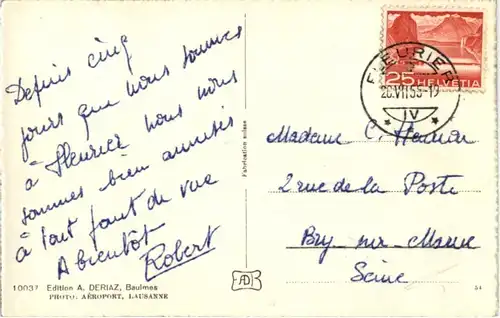 Depuis cinq
jours que nous sommes
à Fleurier nous nous
sommes bien amusés
à tout point de vue
A bientôt
Robert
10037 Edition A. DERIAZ, Baulmes
PHOTO. AÉROPORT, LAUSANNE
Fabrication suisse
25 HELVETIA
FLEURIER
IV
Madame C.
2 rue de la Poste
Bry sur Marne
Seine
AD